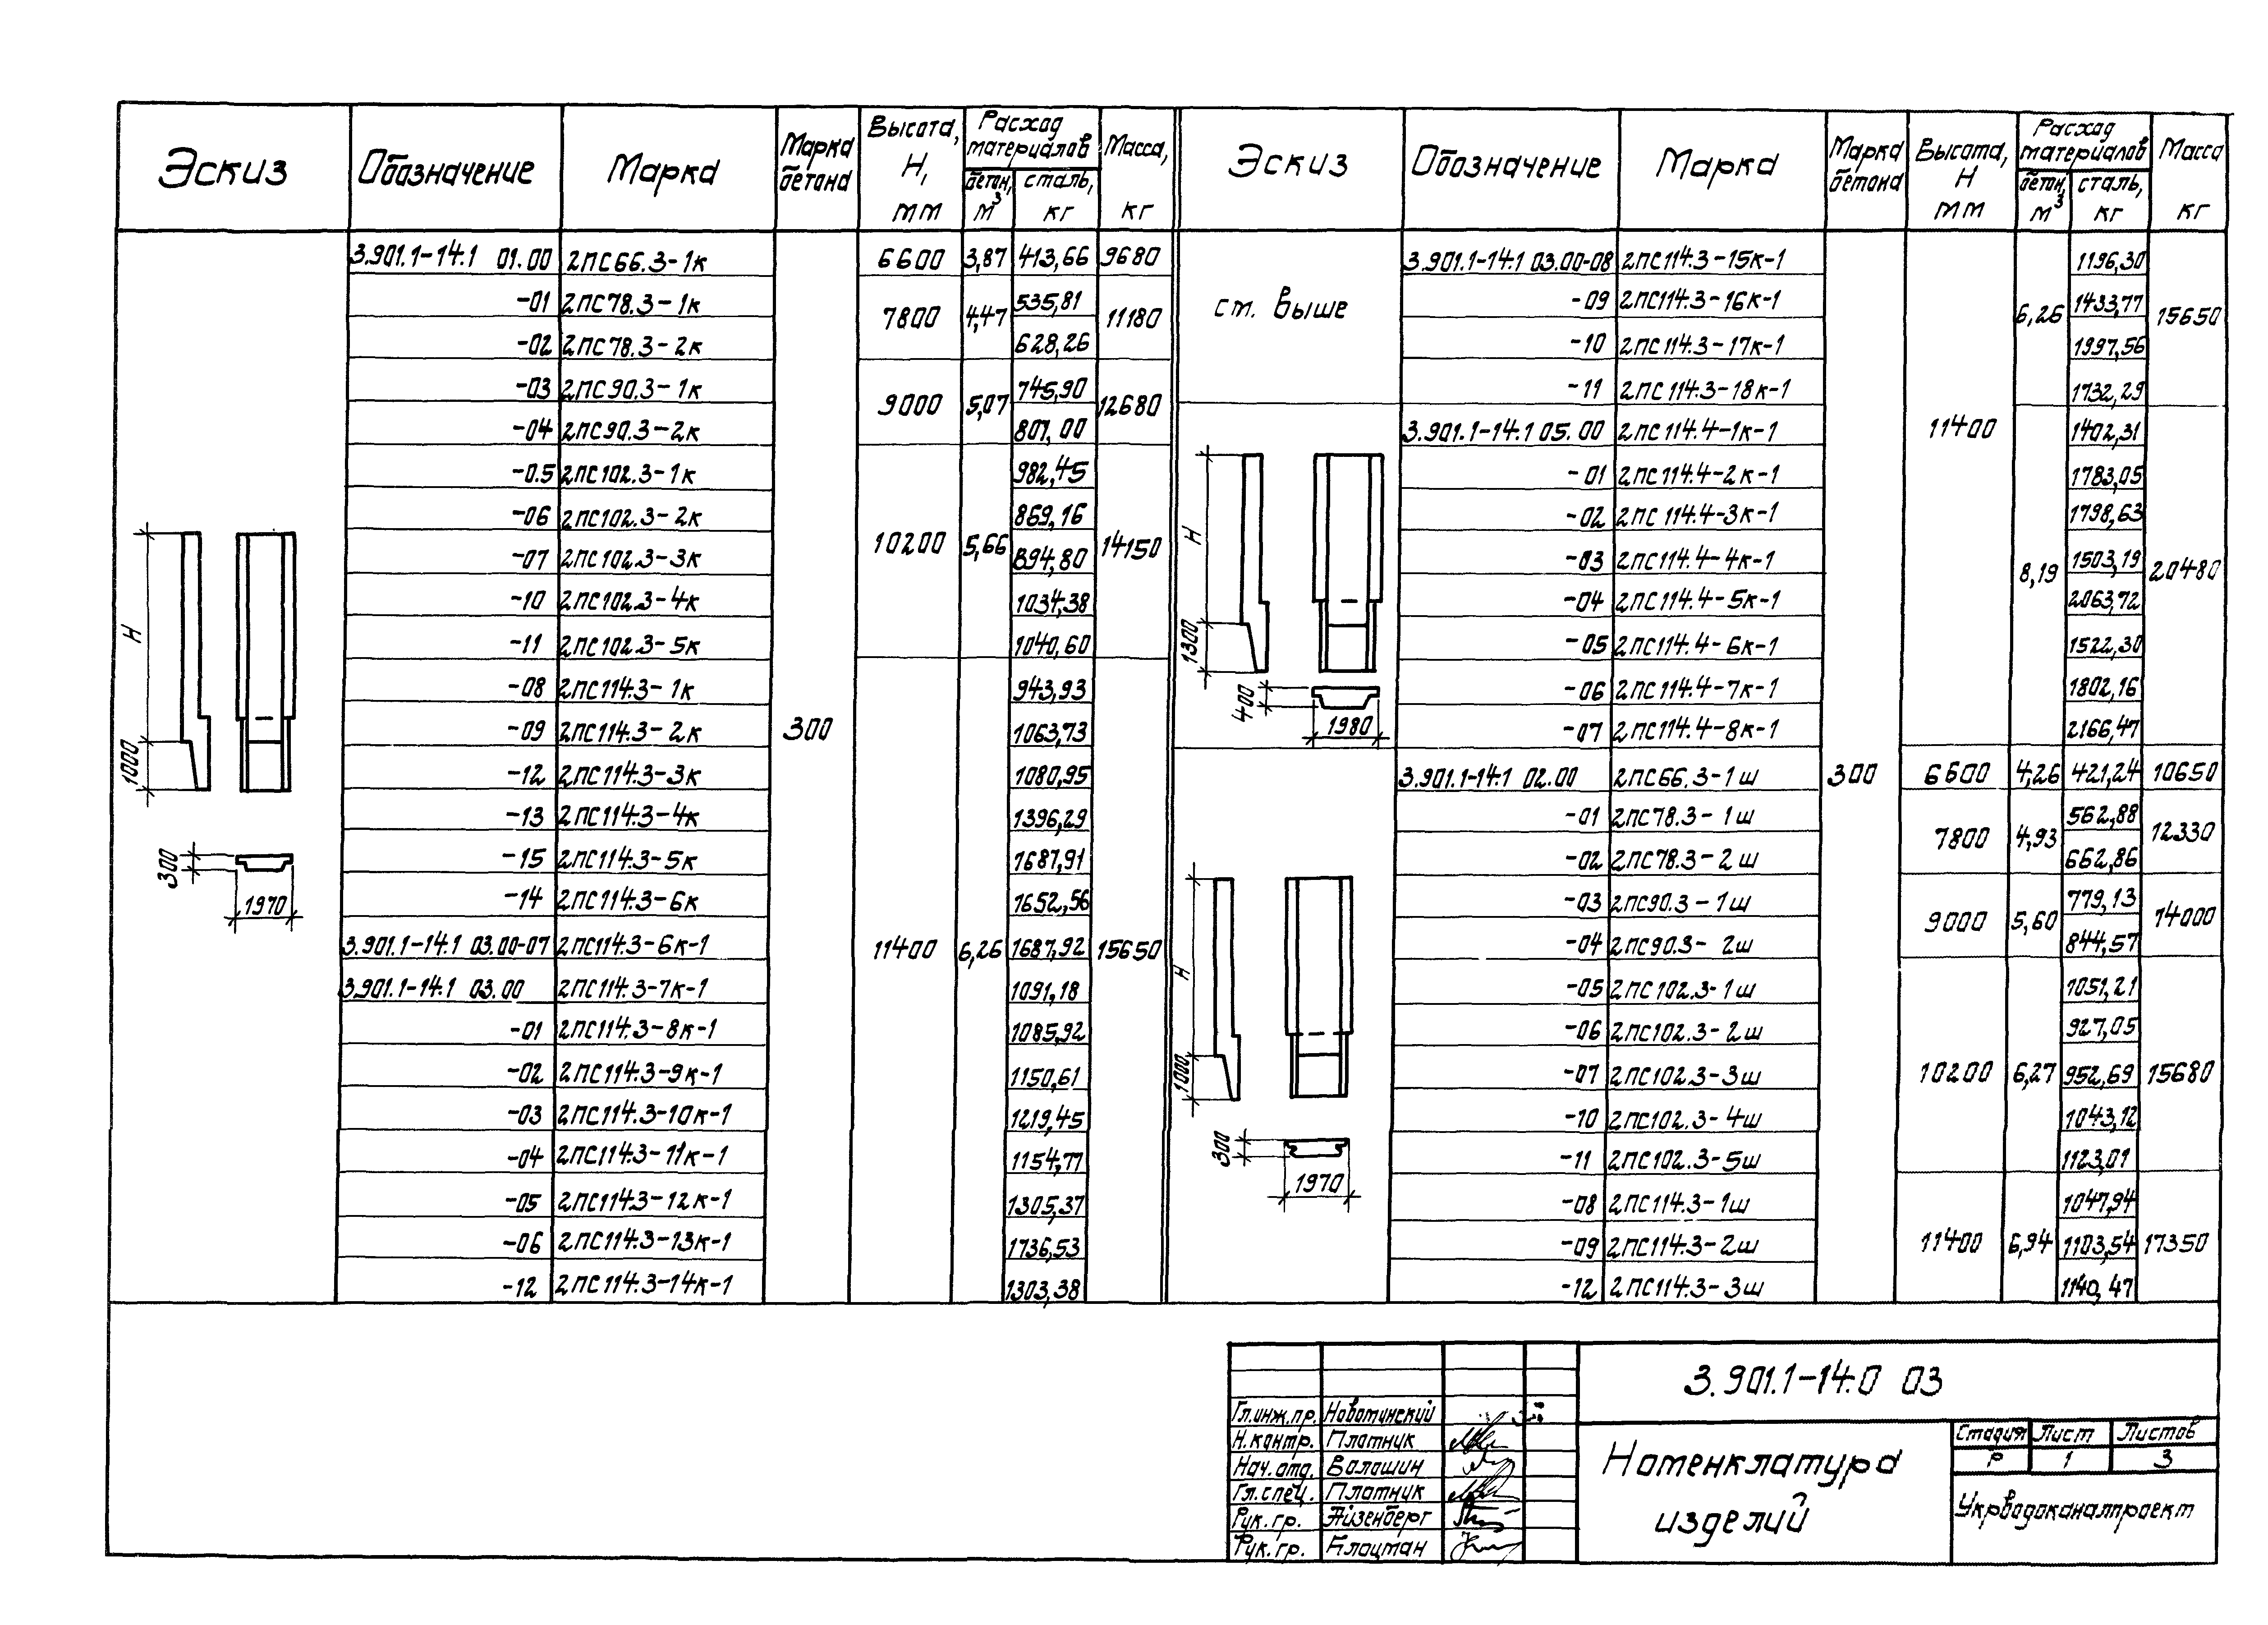 Эскиз Обозначение Марка Марка бетона Высота, Н, мм Расход материалов бетон, м³ сталь, кг Масса, кг
3.901.1-14.1 01.00 2ПС66.3-1к 300 6600 3,87 413,66 9680
-01 2ПС78.3-1к 7800 4,47 535,81 11180
-02 2ПС78.3-2к 628,26
-03 2ПС90.3-1к 9000 5,07 745,90 12680
-04 2ПС90.3-2к 801,00
-0.5 2ПС102.3-1к 10200 5,66 982,45 14150
-06 2ПС102.3-2к 869,16
-07 2ПС102.3-3к 894,80
-10 2ПС102.3-4к 1034,38
-11 2ПС102.3-5к 1040,60
-08 2ПС114.3-1к 11400 6,26 943,93 15650
-09 2ПС114.3-2к 1063,73
-12 2ПС114.3-3к 1080,95
-13 2ПС114.3-4к 1396,29
-15 2ПС114.3-5к 1687,91
-14 2ПС114.3-6к 1652,56
3.901.1-14.1 03.00-07 2ПС114.3-6к-1 1687,92
3.901.1-14.1 03.00 2ПС114.3-7к-1 1091,18
-01 2ПС114.3-8к-1 1085,92
-02 2ПС114.3-9к-1 1150,61
-03 2ПС114.3-10к-1 1219,45
-04 2ПС114.3-11к-1 1154,77
-05 2ПС114.3-12к-1 1305,37
-06 2ПС114.3-13к-1 1736,53
-12 2ПС114.3-14к-1 1303,38
Н
1000
300
1970
Эскиз Обозначение Марка Марка бетона Высота, Н мм Расход материалов бетон, м³ сталь, кг Масса кг
ст. выше
3.901.1-14.1 03.00-08 2ПС114.3-15к-1 300 11400 6,26 1196,30 15650
-09 2ПС114.3-16к-1 1433,77
-10 2ПС114.3-17к-1 1997,56
-11 2ПС114.3-18к-1 1732,29
3.901.1-14.1 05.00 2ПС114.4-1к-1 8,19 1402,31 20480
-01 2ПС114.4-2к-1 1783,05
-02 2ПС114.4-3к-1 1798,63
-03 2ПС114.4-4к-1 1503,19
-04 2ПС114.4-5к-1 2063,72
-05 2ПС114.4-6к-1 1522,30
-06 2ПС114.4-7к-1 1802,16
-07 2ПС114.4-8к-1 2166,47
Н
1300
400
1980
3.901.1-14.1 02.00 2ПС66.3-1ш 6600 4,26 421,24 10650
-01 2ПС78.3-1ш 7800 4,93 562,88 12330
-02 2ПС78.3-2ш 662,86
-03 2ПС90.3-1ш 9000 5,60 779,13 14000
-04 2ПС90.3-2ш 844,57
-05 2ПС102.3-1ш 10200 6,27 1051,21 15680
-06 2ПС102.3-2ш 927,05
-07 2ПС102.3-3ш 952,69
-10 2ПС102.3-4ш 1043,12
-11 2ПС102.3-5ш 1123,01
-08 2ПС114.3-1ш 11400 6,94 1047,94 17350
-09 2ПС114.3-2ш 1103,54
-12 2ПС114.3-3ш 1140,47
Н
1000
300
1970
3.901.1-14.0 03
Гл.инж.пр. Новотинский
Н.контр. Плотник
Нач.отд. Волошин
Гл.спец. Плотник
Рук.гр. Айзенберг
Рук.гр. Блоцман
Номенклатура
изделий
Стадия Лист Листов
Р 1 3
Укрводоканалпроект